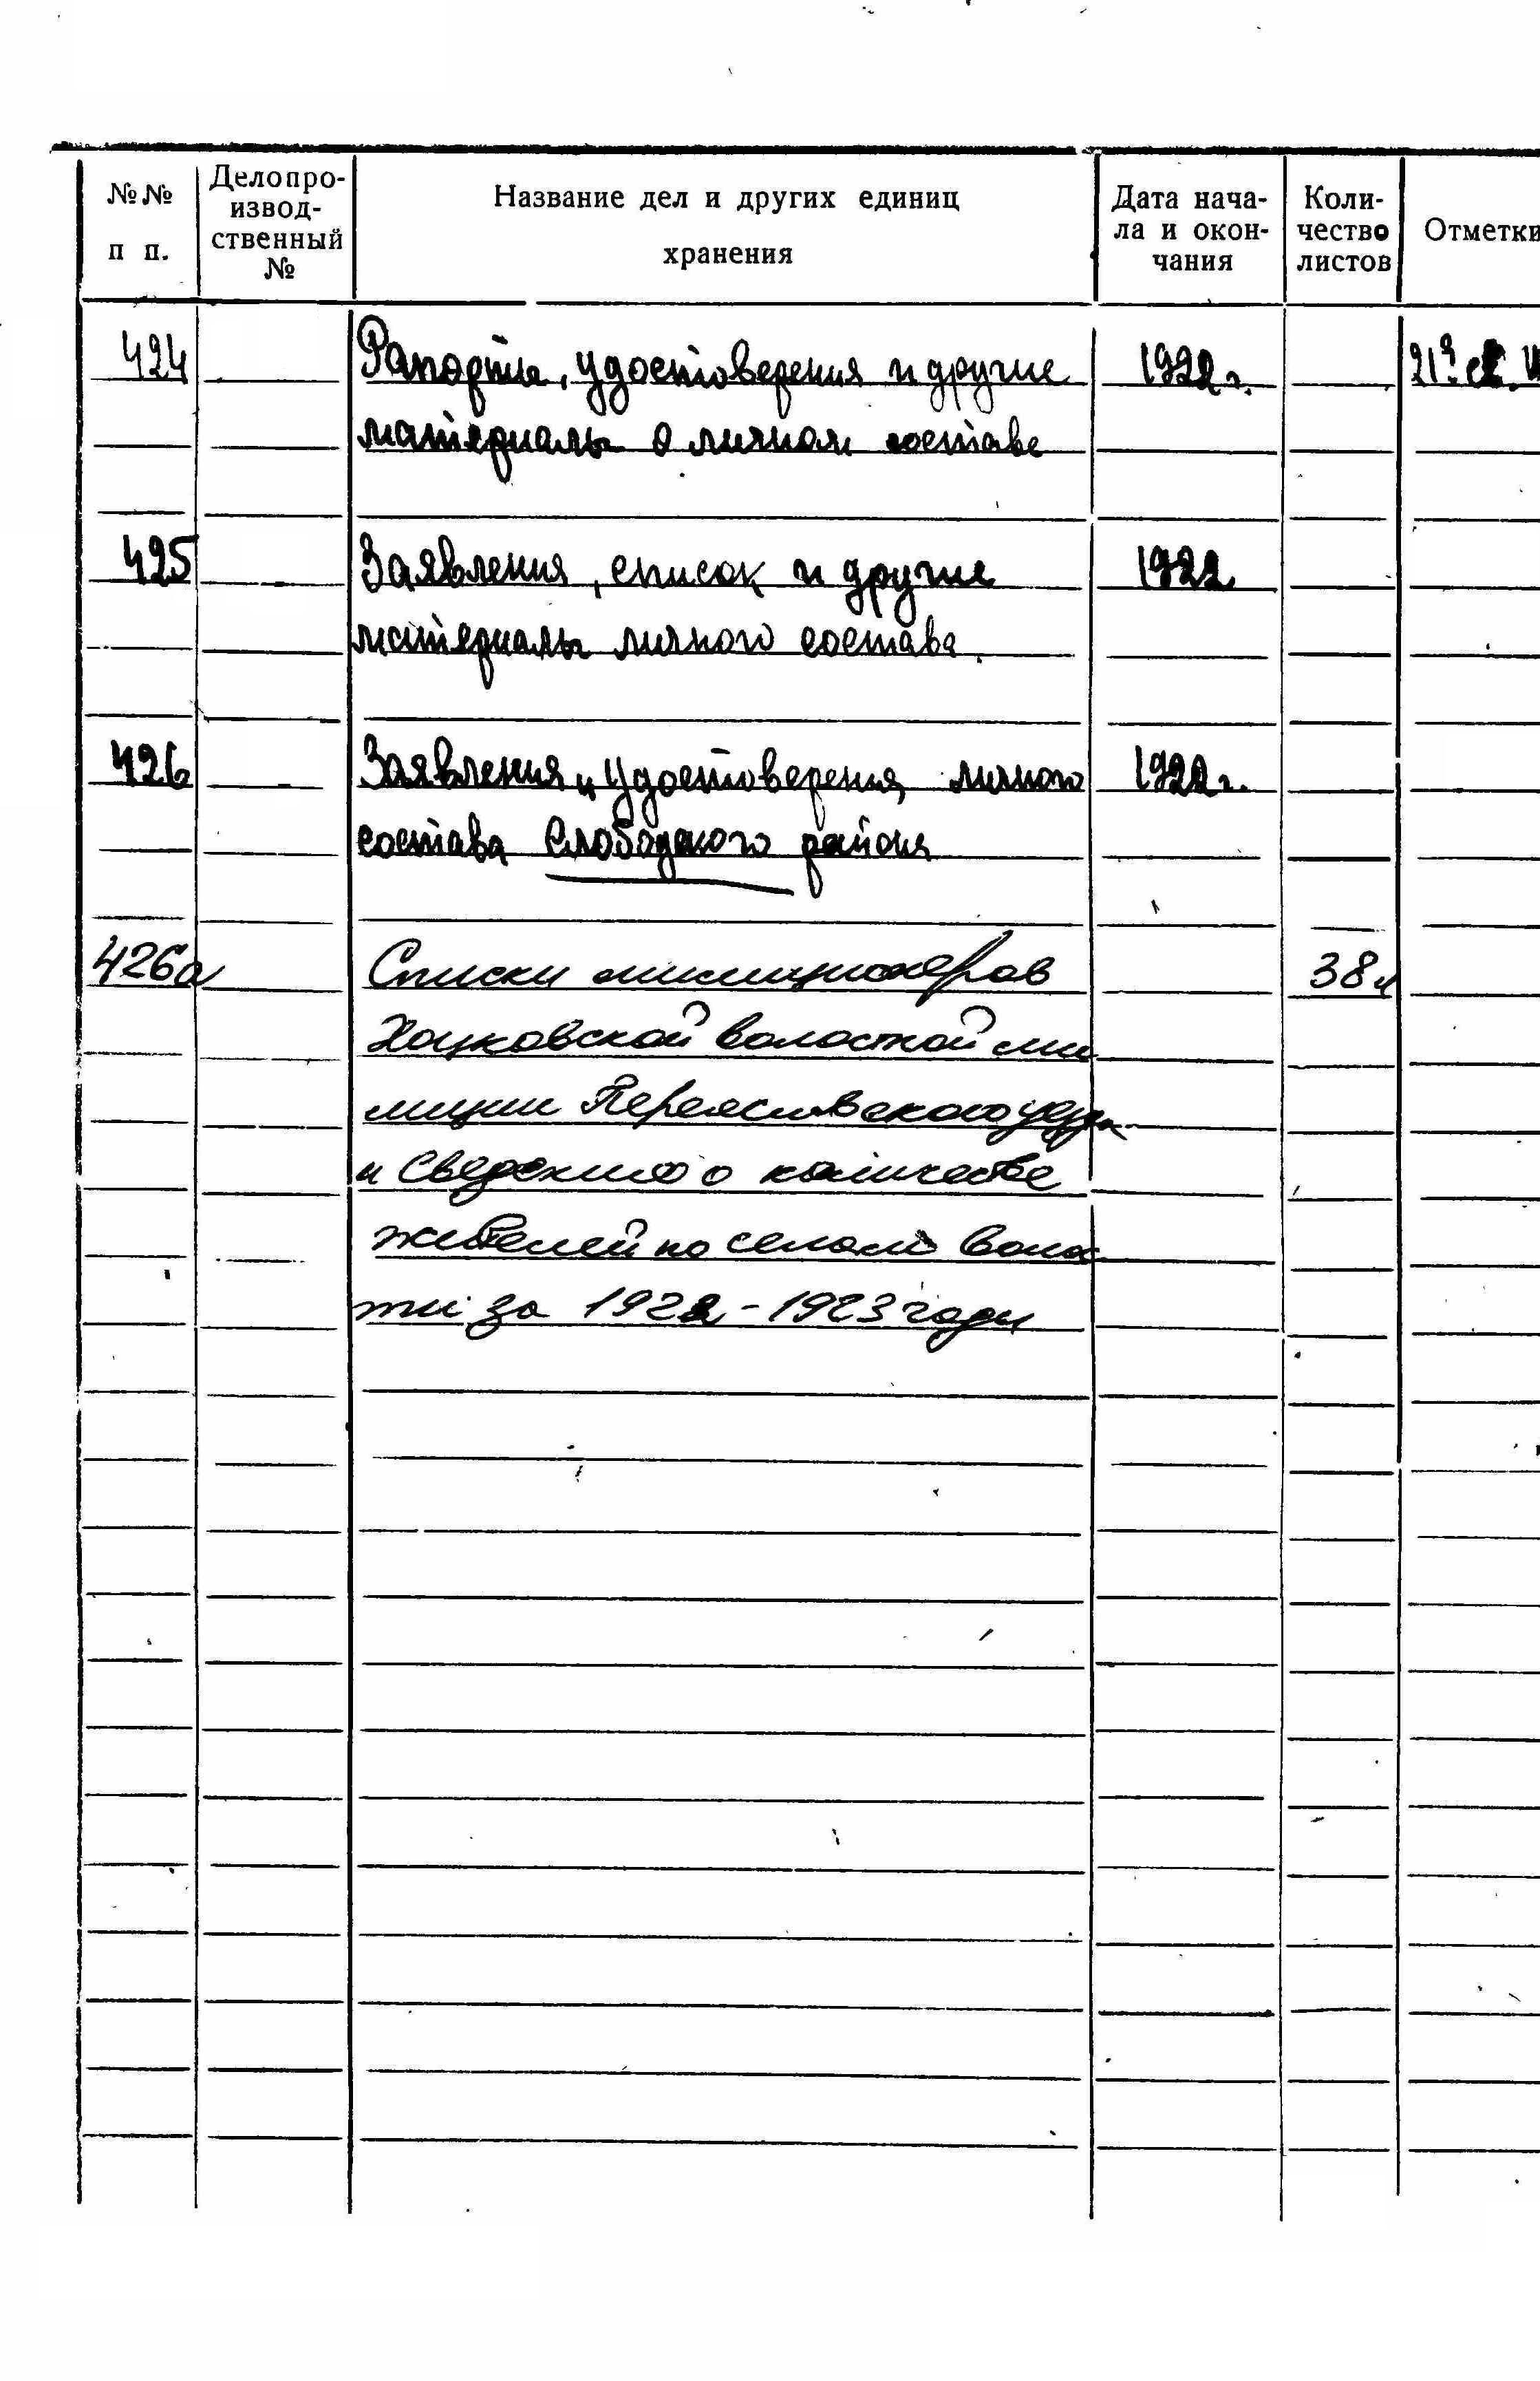 №№ п п.
Делопро-
извод-
ственный
№
Название дел и других единиц
хранения
Дата нача-
ла и окон-
чания
Коли-
чество
листов
Отметки
424 Рапорты, удостоверения и другие 1922 г.
материалы о личном составе
425 Заявления, список и другие 1922
материалы личного состава.
426 Заявления и удостоверения личного 1922 г.
состава Слободского района
426а Списки милиционеров 38 л
Хоцковской волостной ми
лиции Переяславского уезда
и сведения о количестве
жителей по селам волос
ти за 1922-1923 годы